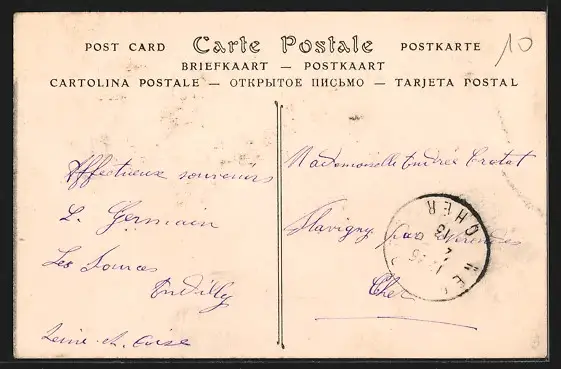 POST CARD Carte Postale POSTKARTE
BRIEFKAART — POSTKAART
CARTOLINA POSTALE — ОТКРЫТОЕ ПИСЬМО — TARJETA POSTAL
10
Affectueux souvenirs
L. Germain
Les Sources
Andilly
Seine-et-Oise
Mademoiselle Andrée Crotat
Flavigny par Nérondes
Cher
CHER
13